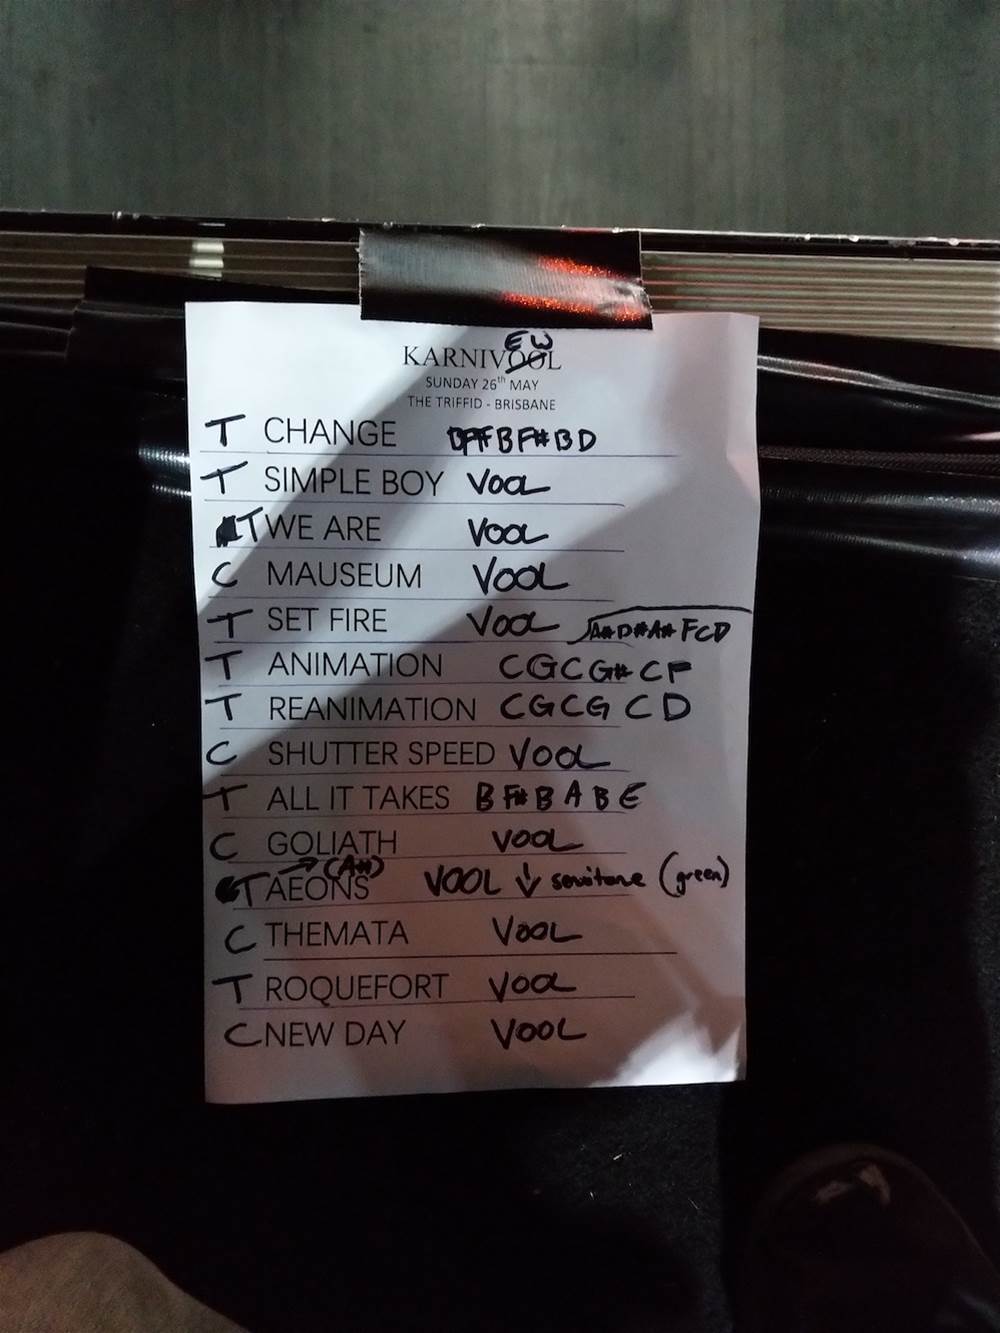 EW
KARNIVOOL
SUNDAY 26th MAY
THE TRIFFID - BRISBANE
T CHANGE BF#BF#BD
T SIMPLE BOY VOOL
T WE ARE VOOL
C MAUSEUM VOOL
T SET FIRE VOOL A#D#A#FCD
T ANIMATION CGCG#CF
T REANIMATION CGCGCD
C SHUTTER SPEED VOOL
T ALL IT TAKES BF#BABE
C GOLIATH VOOL
→(A#)
T AEONS VOOL ↓ semitone (green)
C THEMATA VOOL
T ROQUEFORT VOOL
C NEW DAY VOOL